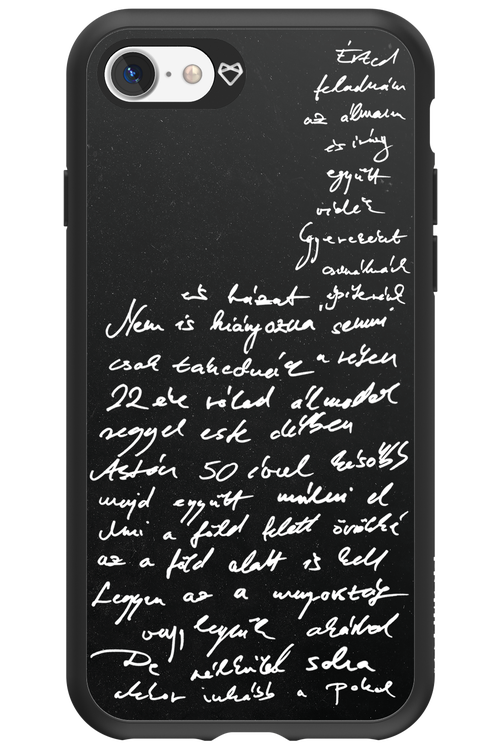 Érted
feladnám
az álmaim
és így
együtt
vidék
Gyerekeket
csinálnánk
és házat építenék
Nem is hiányozna semmi
csak tekednék a réten
22 éve rólad álmodok
reggel este délben
Aztán 50 évvel később
majd együtt múlni el
Ami a föld felett örökké
az a föld alatt is kell
Legyen az a mennyország
vagy legyünk akárhol
De nélküled soha
akkor inkább a Pokol